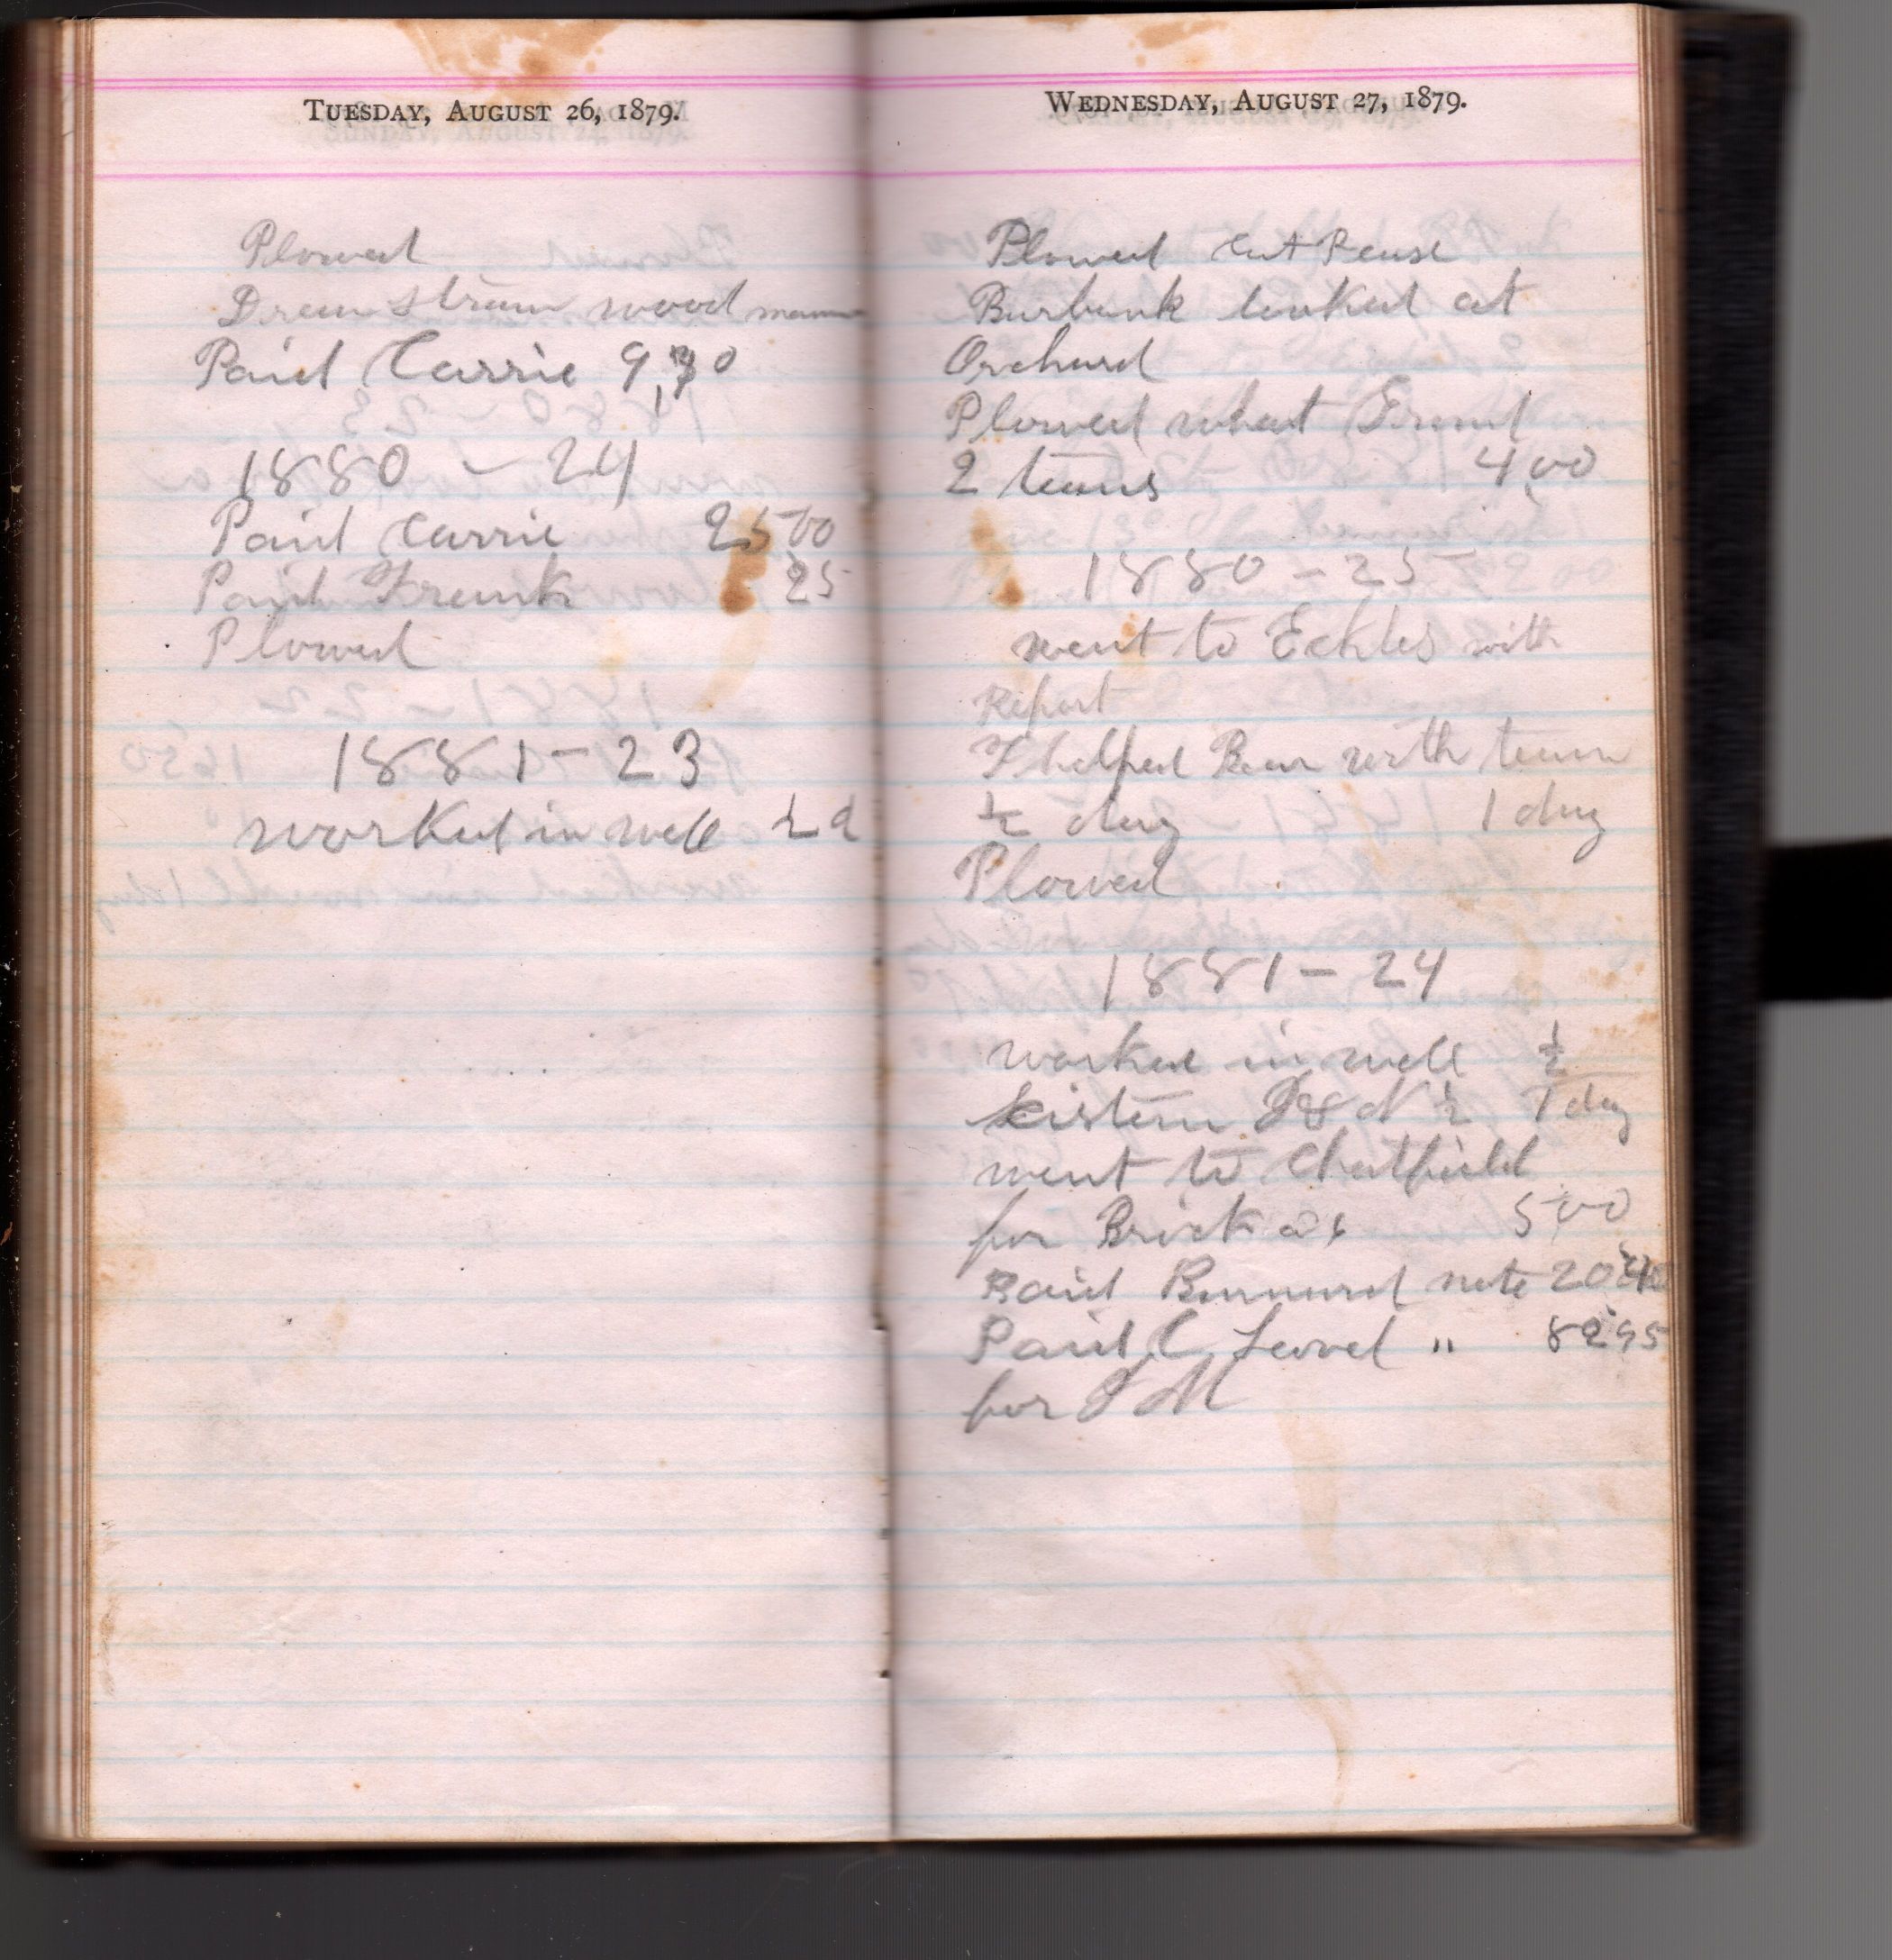 TUESDAY, AUGUST 26, 1879.
Plowed
Drew steam wood
Paid Carrie 9,
1880 - 24
Paid Carrie 25 00
Paid Frank 25
Plowed
1881 - 23
worked in well ½ d
WEDNESDAY, AUGUST 27, 1879.
Plowed Cut
Burbank looked at
Orchard
Plowed wheat
2 teams 4,00
1880 - 25
went to Eckles with
Report
I helped Ben with team
½ day 1 day
Plowed
1881 - 24
worked in well ½
cistern ½ 1 day
went to Chatfield
for Brick 5,00
Paid note
Paid C " 8295
for